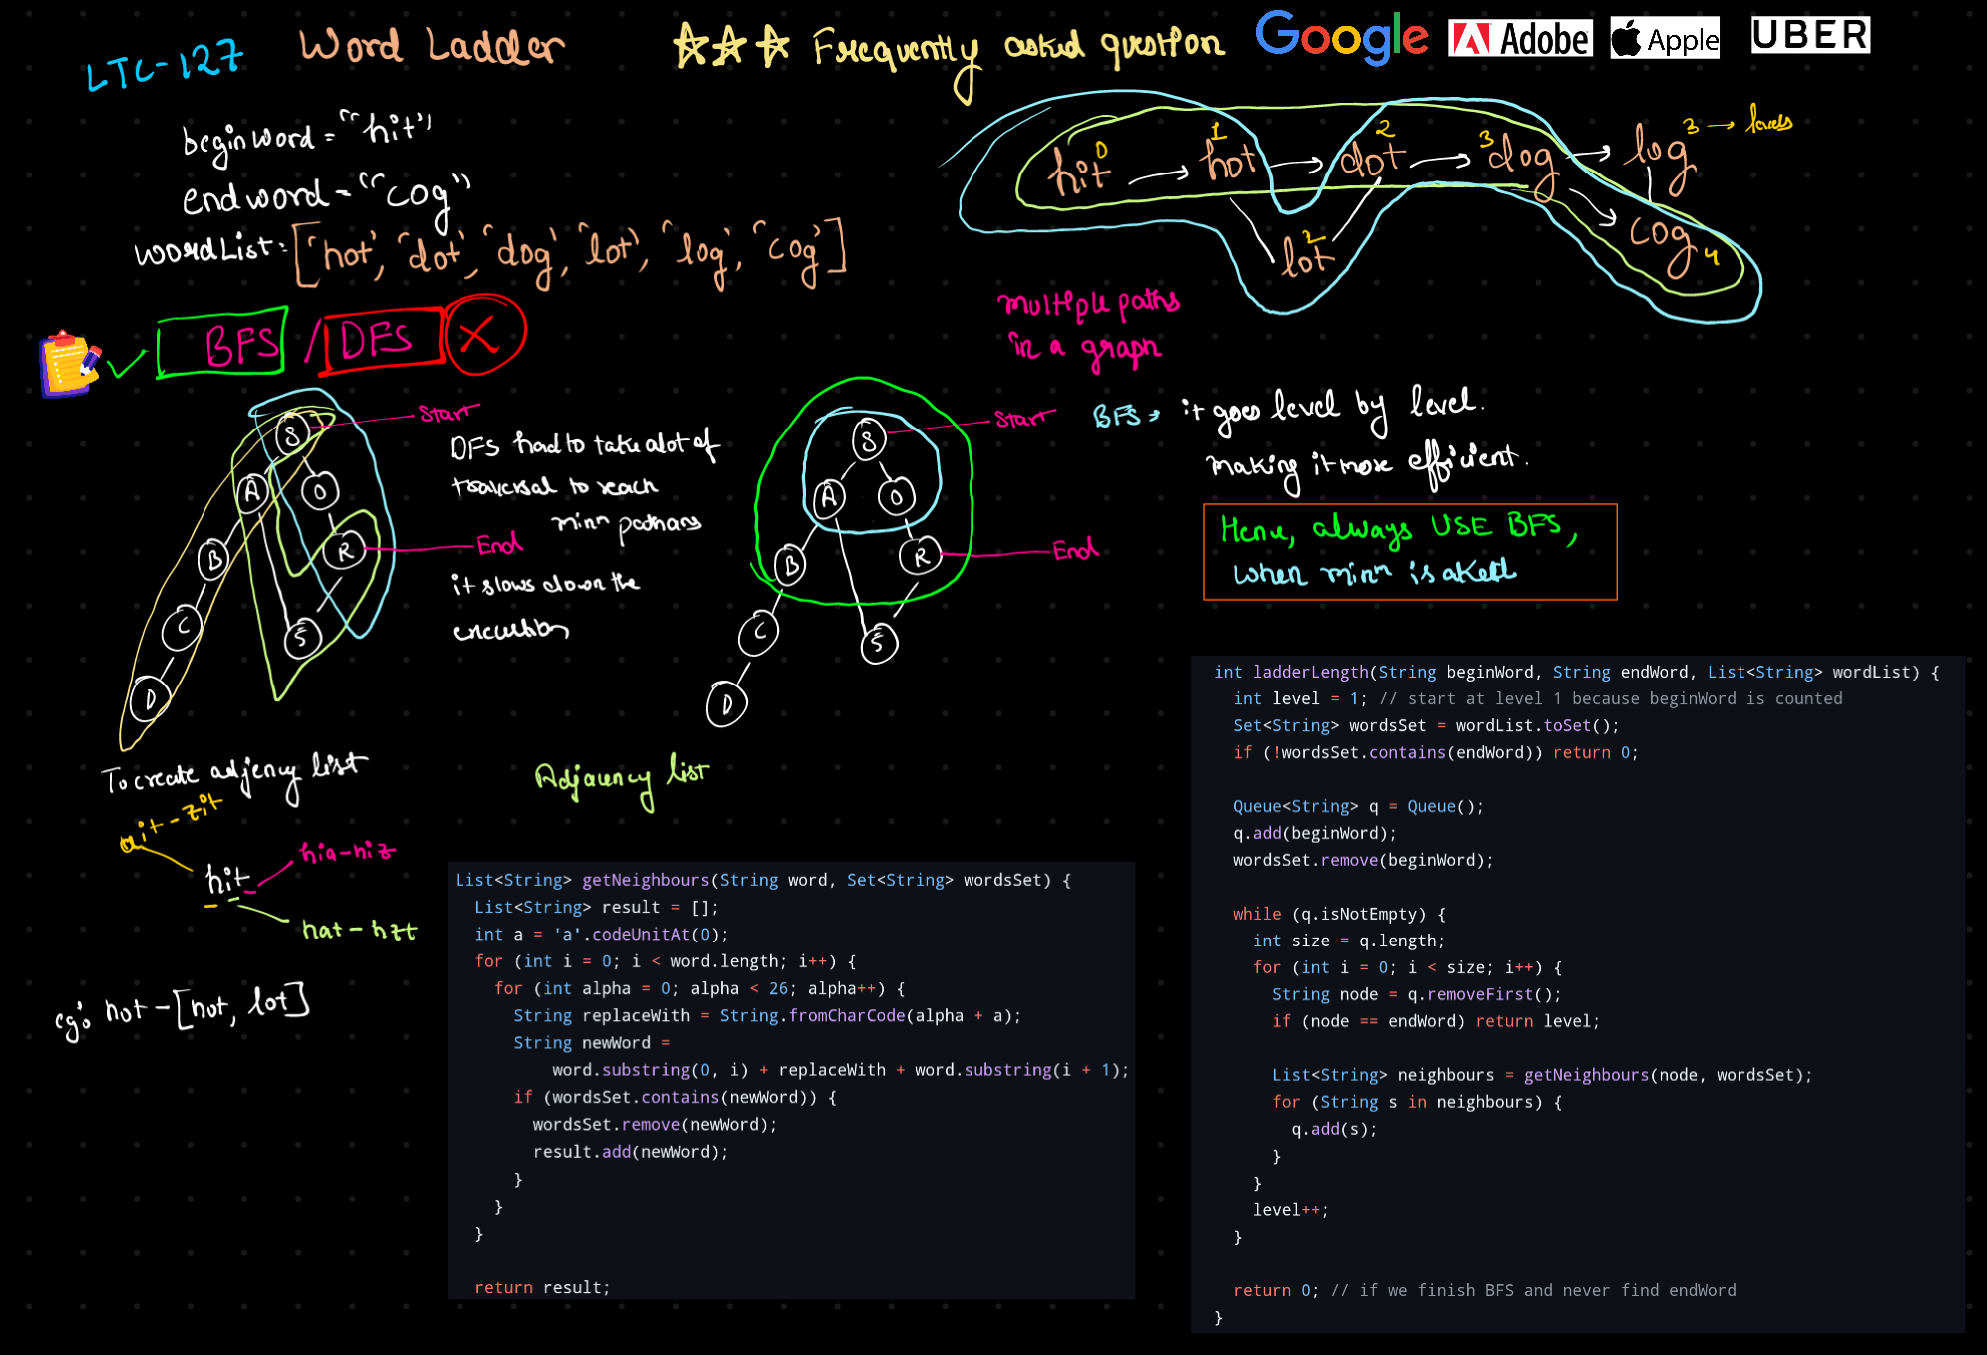 LTC-127 Word Ladder ☆☆☆ Frequently asked question Google Adobe Apple UBER
beginword = "hit"
endword = "cog"
wordList = ['hot', 'dot', 'dog', 'lot', 'log', 'cog']
hit 0 → hot 1 → dot 2 → 3 dog → log 3 → levels
lot 2
cog 4
multiple paths
in a graph
BFS / DFS X
Start
S
A
O
B
R
C
S
D
End
DFS had to take alot of
traversal to reach
minm
it slows down the
Start
S
A
O
B
R
C
S
D
End
BFS → it goes level by level.
making it more efficient.
Hence, always USE BFS,
when minm is aked
To create adjency list
ait - zit
hit
hia - hiz
hat - hzt
eg: hot - [hot, lot]
Adjacency list
List<String> getNeighbours(String word, Set<String> wordsSet) {
List<String> result = [];
int a = 'a'.codeUnitAt(0);
for (int i = 0; i < word.length; i++) {
for (int alpha = 0; alpha < 26; alpha++) {
String replaceWith = String.fromCharCode(alpha + a);
String newWord =
word.substring(0, i) + replaceWith + word.substring(i + 1);
if (wordsSet.contains(newWord)) {
wordsSet.remove(newWord);
result.add(newWord);
}
}
}
return result;
int ladderLength(String beginWord, String endWord, List<String> wordList) {
int level = 1; // start at level 1 because beginWord is counted
Set<String> wordsSet = wordList.toSet();
if (!wordsSet.contains(endWord)) return 0;
Queue<String> q = Queue();
q.add(beginWord);
wordsSet.remove(beginWord);
while (q.isNotEmpty) {
int size = q.length;
for (int i = 0; i < size; i++) {
String node = q.removeFirst();
if (node == endWord) return level;
List<String> neighbours = getNeighbours(node, wordsSet);
for (String s in neighbours) {
q.add(s);
}
}
level++;
}
return 0; // if we finish BFS and never find endWord
}